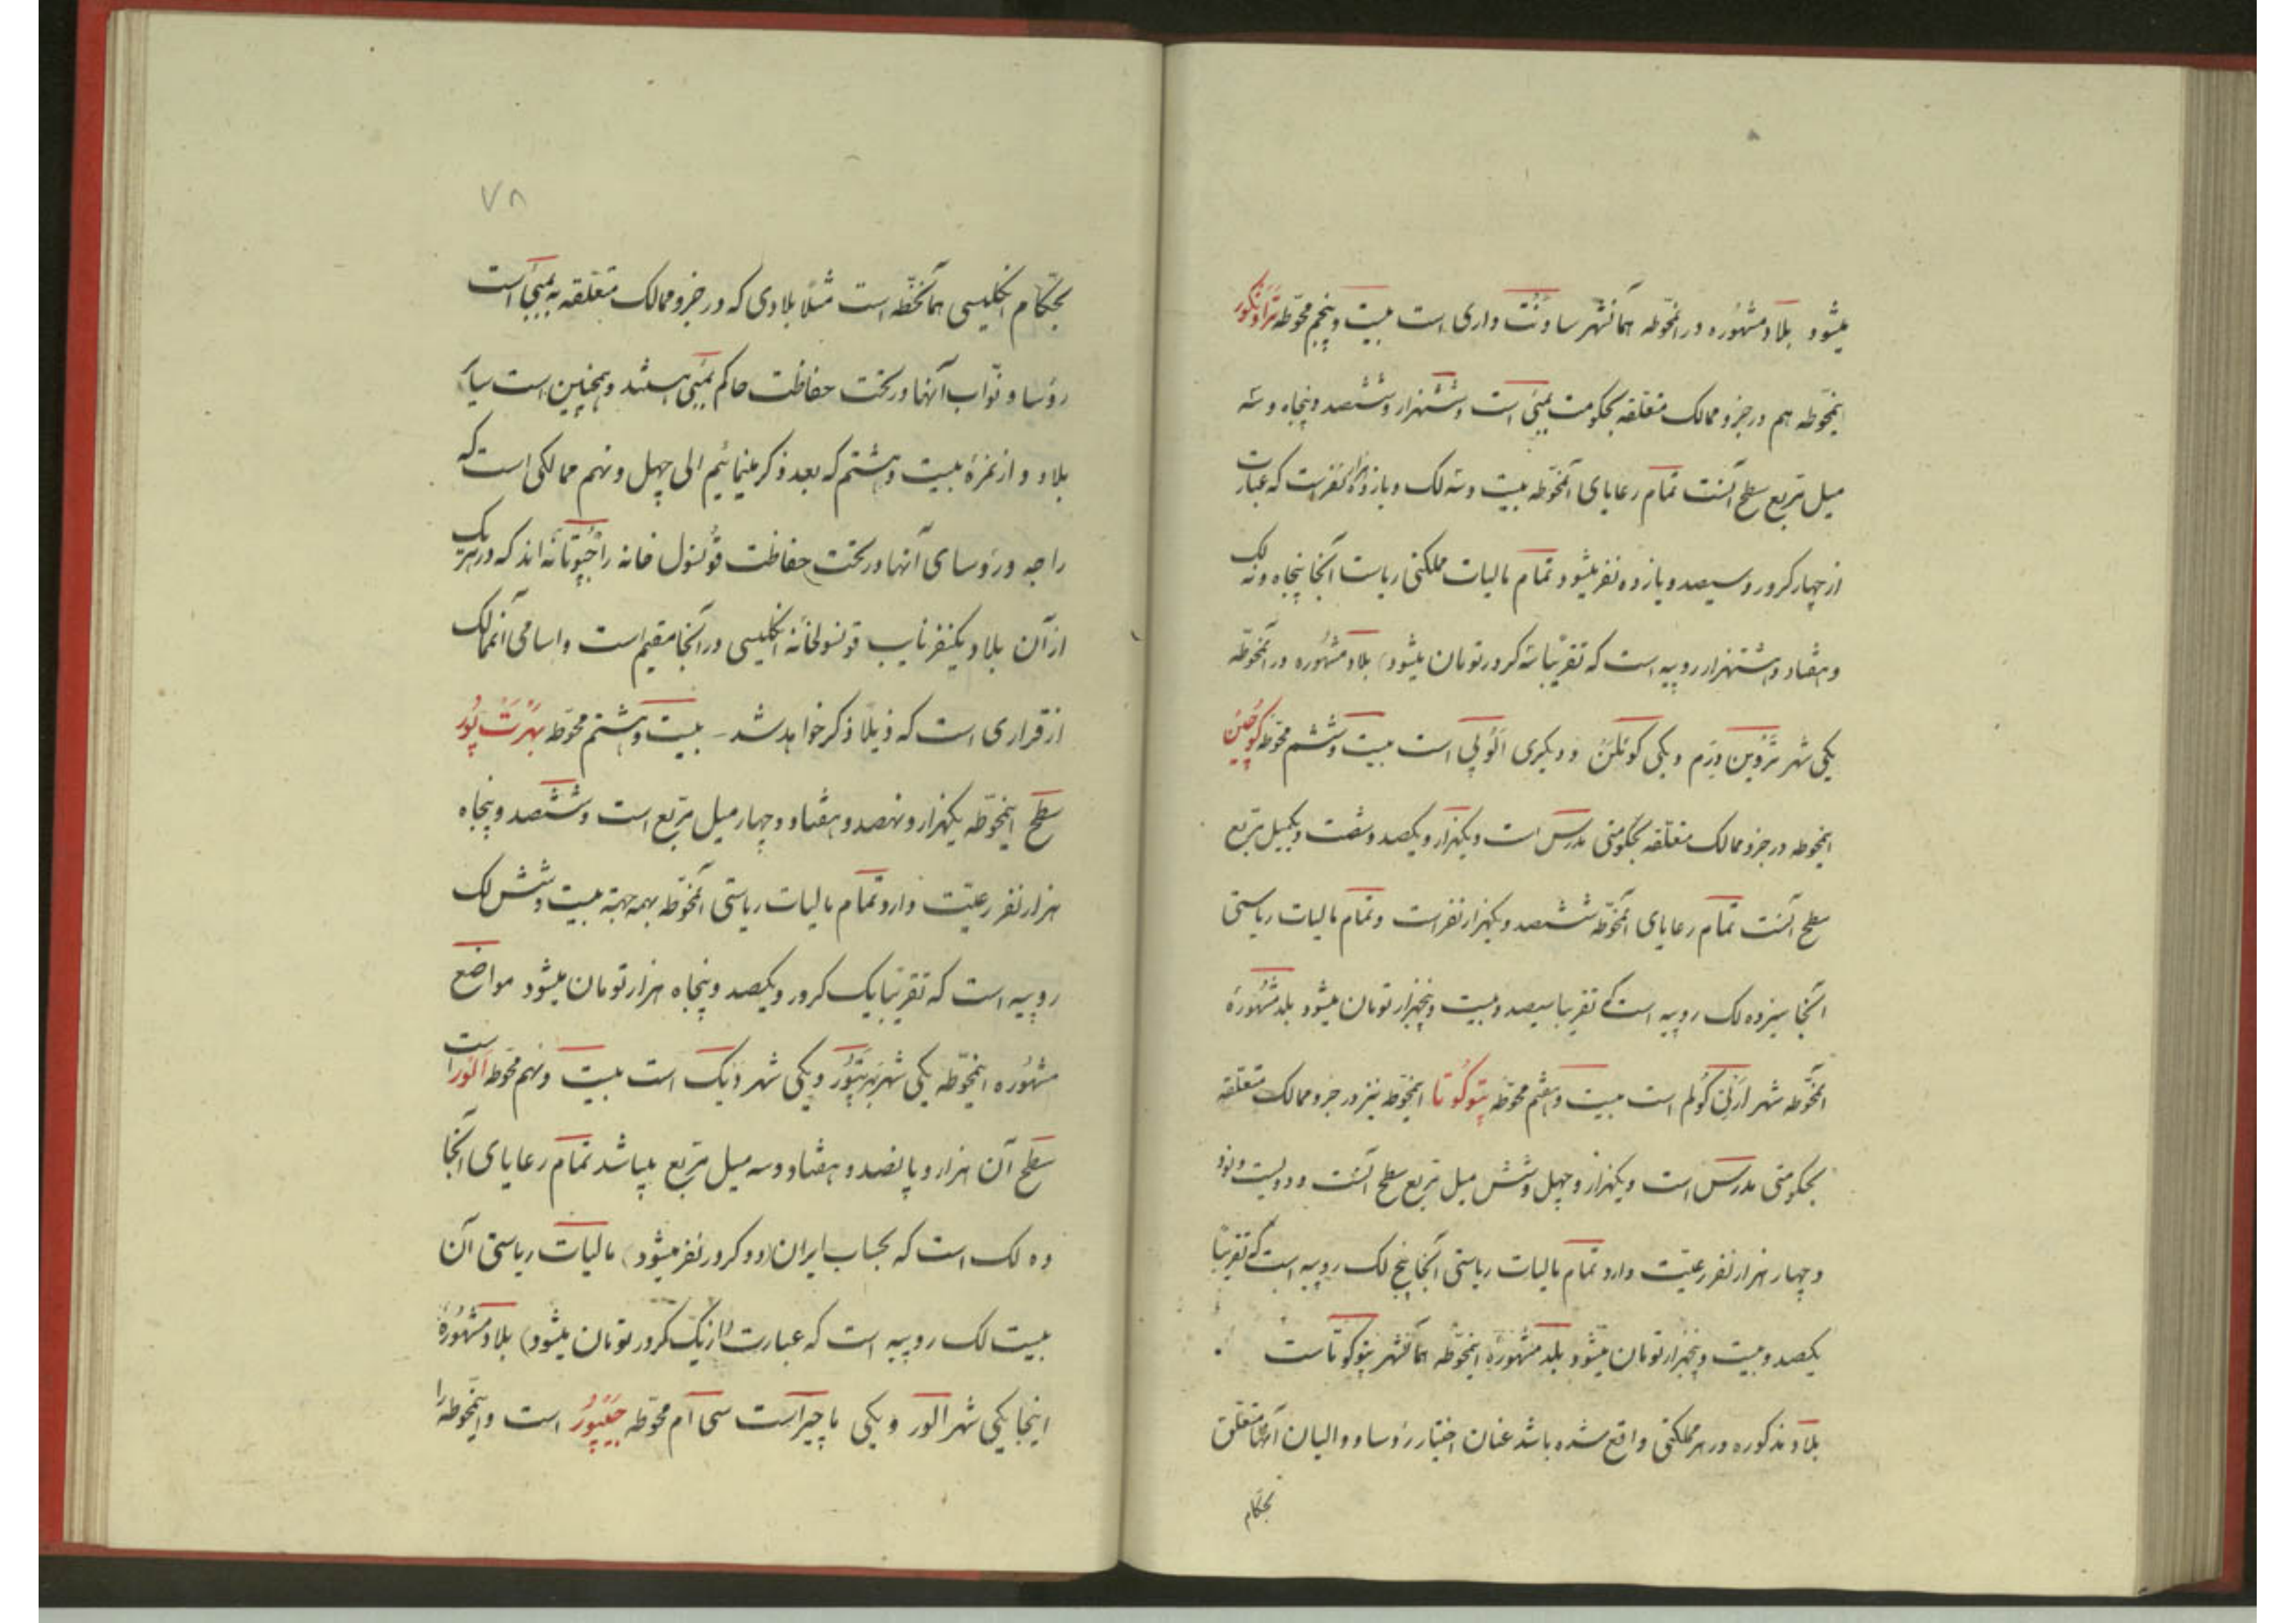 میشود بلاد مشهوره در انمحوّطه همانشهر ساونت واری است بیست و پنجم محوّطه تراونکور
اینمحوّطه هم در جزو ممالک متعلقه بحکومت بمبئی است و ششهزار و ششصد و پنجاه و سه
میل مربع سطح آنست تمام رعایای انمحوّطه بیست و سه لک و یازده هزار نفر است که عبارت
از چهار کرور و سیصد و یازده نفر میشود تمام مالیات مملکتی ریاست آنجا پنجاه و نه لک
و هفتاد و هشتهزار روپیه است که تقریبًا سه کرور تومان میشود) بلاد مشهوره در انمحوّطه
یکی شهر تروین درم و یکی کوئلن و دیگری الوپی است بیست و ششم محوّطه کوچین
اینمحوطه در جزو ممالک متعلقه بحکومتی مدرس است و یکهزار و یکصد و شصت و یکمیل مربع
سطح آنست تمام رعایای انمحوّطه ششصد و یکهزار نفر است و تمام مالیات ریاستی
آنجا سیزده لک روپیه است که تقریبا سیصد و بیست و پنجهزار تومان میشود بلد مشهورهٔ
انمحوّطه شهر ارنی کولم است بیست و هفتم محوّطه پتوکوتا اینمحوّطه نیز در جزو ممالک متعلقه
بحکومتی مدرس است و یکهزار و چهل و شش میل مربع سطح آنست و دویست و نود
و چهار هزار نفر رعیّت دارد تمام مالیات ریاستی آنجا پنج لک روپیه است که تقریبًا
یکصد و بیست و پنجهزار تومان میشود بلد مشهورهٔ اینمحوّطه همانشهر پتوکوتا است
بلاد مذکوره در هر مملکتی واقع شده باشد عنان اختیار رؤسا و والیان آنها متعلق
بحکام
۷۸
بحکّام انگلیسی همانخطّه است مثلًا بلادی که در جزو ممالک متعلّقه به بمبئی است
رؤسا و نوّاب آنها در تحت حفاظت حاکم بمبئی هستند و همچنین است سایر
بلاد و از نمرهٔ بیست و هشتم که بعد ذکر مینمائیم الی چهل و نهم ممالکی است که
راجه و رؤسای آنها در تحت حفاظت قونسول خانه راجپوتانه اند که در هر یک
از آن بلاد یکنفر نایب قونسولخانه انگلیسی در آنجا مقیم است و اسامی آنممالک
از قراری است که ذیلًا ذکر خواهد شد – بیست و هشتم محوّطه بهرت پور
سطح اینمحوّطه یکهزار و نهصد و هفتاد و چهار میل مربع است و ششصد و پنجاه
هزار نفر رعیّت دارد و تمام مالیات ریاستی انمحوّطه بهمه جهة بیست و شش لک
روپیه است که تقریبًا یک کرور و یکصد و پنجاه هزار تومان میشود مواضع
مشهوره اینمحوّطه یکی شهر بهرتپور و یکی شهر دیک است بیست و نهم محوّطه الور است
سطح آن هزار و پانصد و هفتاد و سه میل مربع میباشد تمام رعایای آنجا
ده لک است که بحساب ایران (دو کرور نفر میشود) مالیات ریاستی آن
بیست لک روپیه است که عبارت (از یک کرور تومان میشود) بلاد مشهورهٔ
اینجا یکی شهر الور و یکی ماچیر است سی اُم محوّطه جیپور است و اینمحوطه را